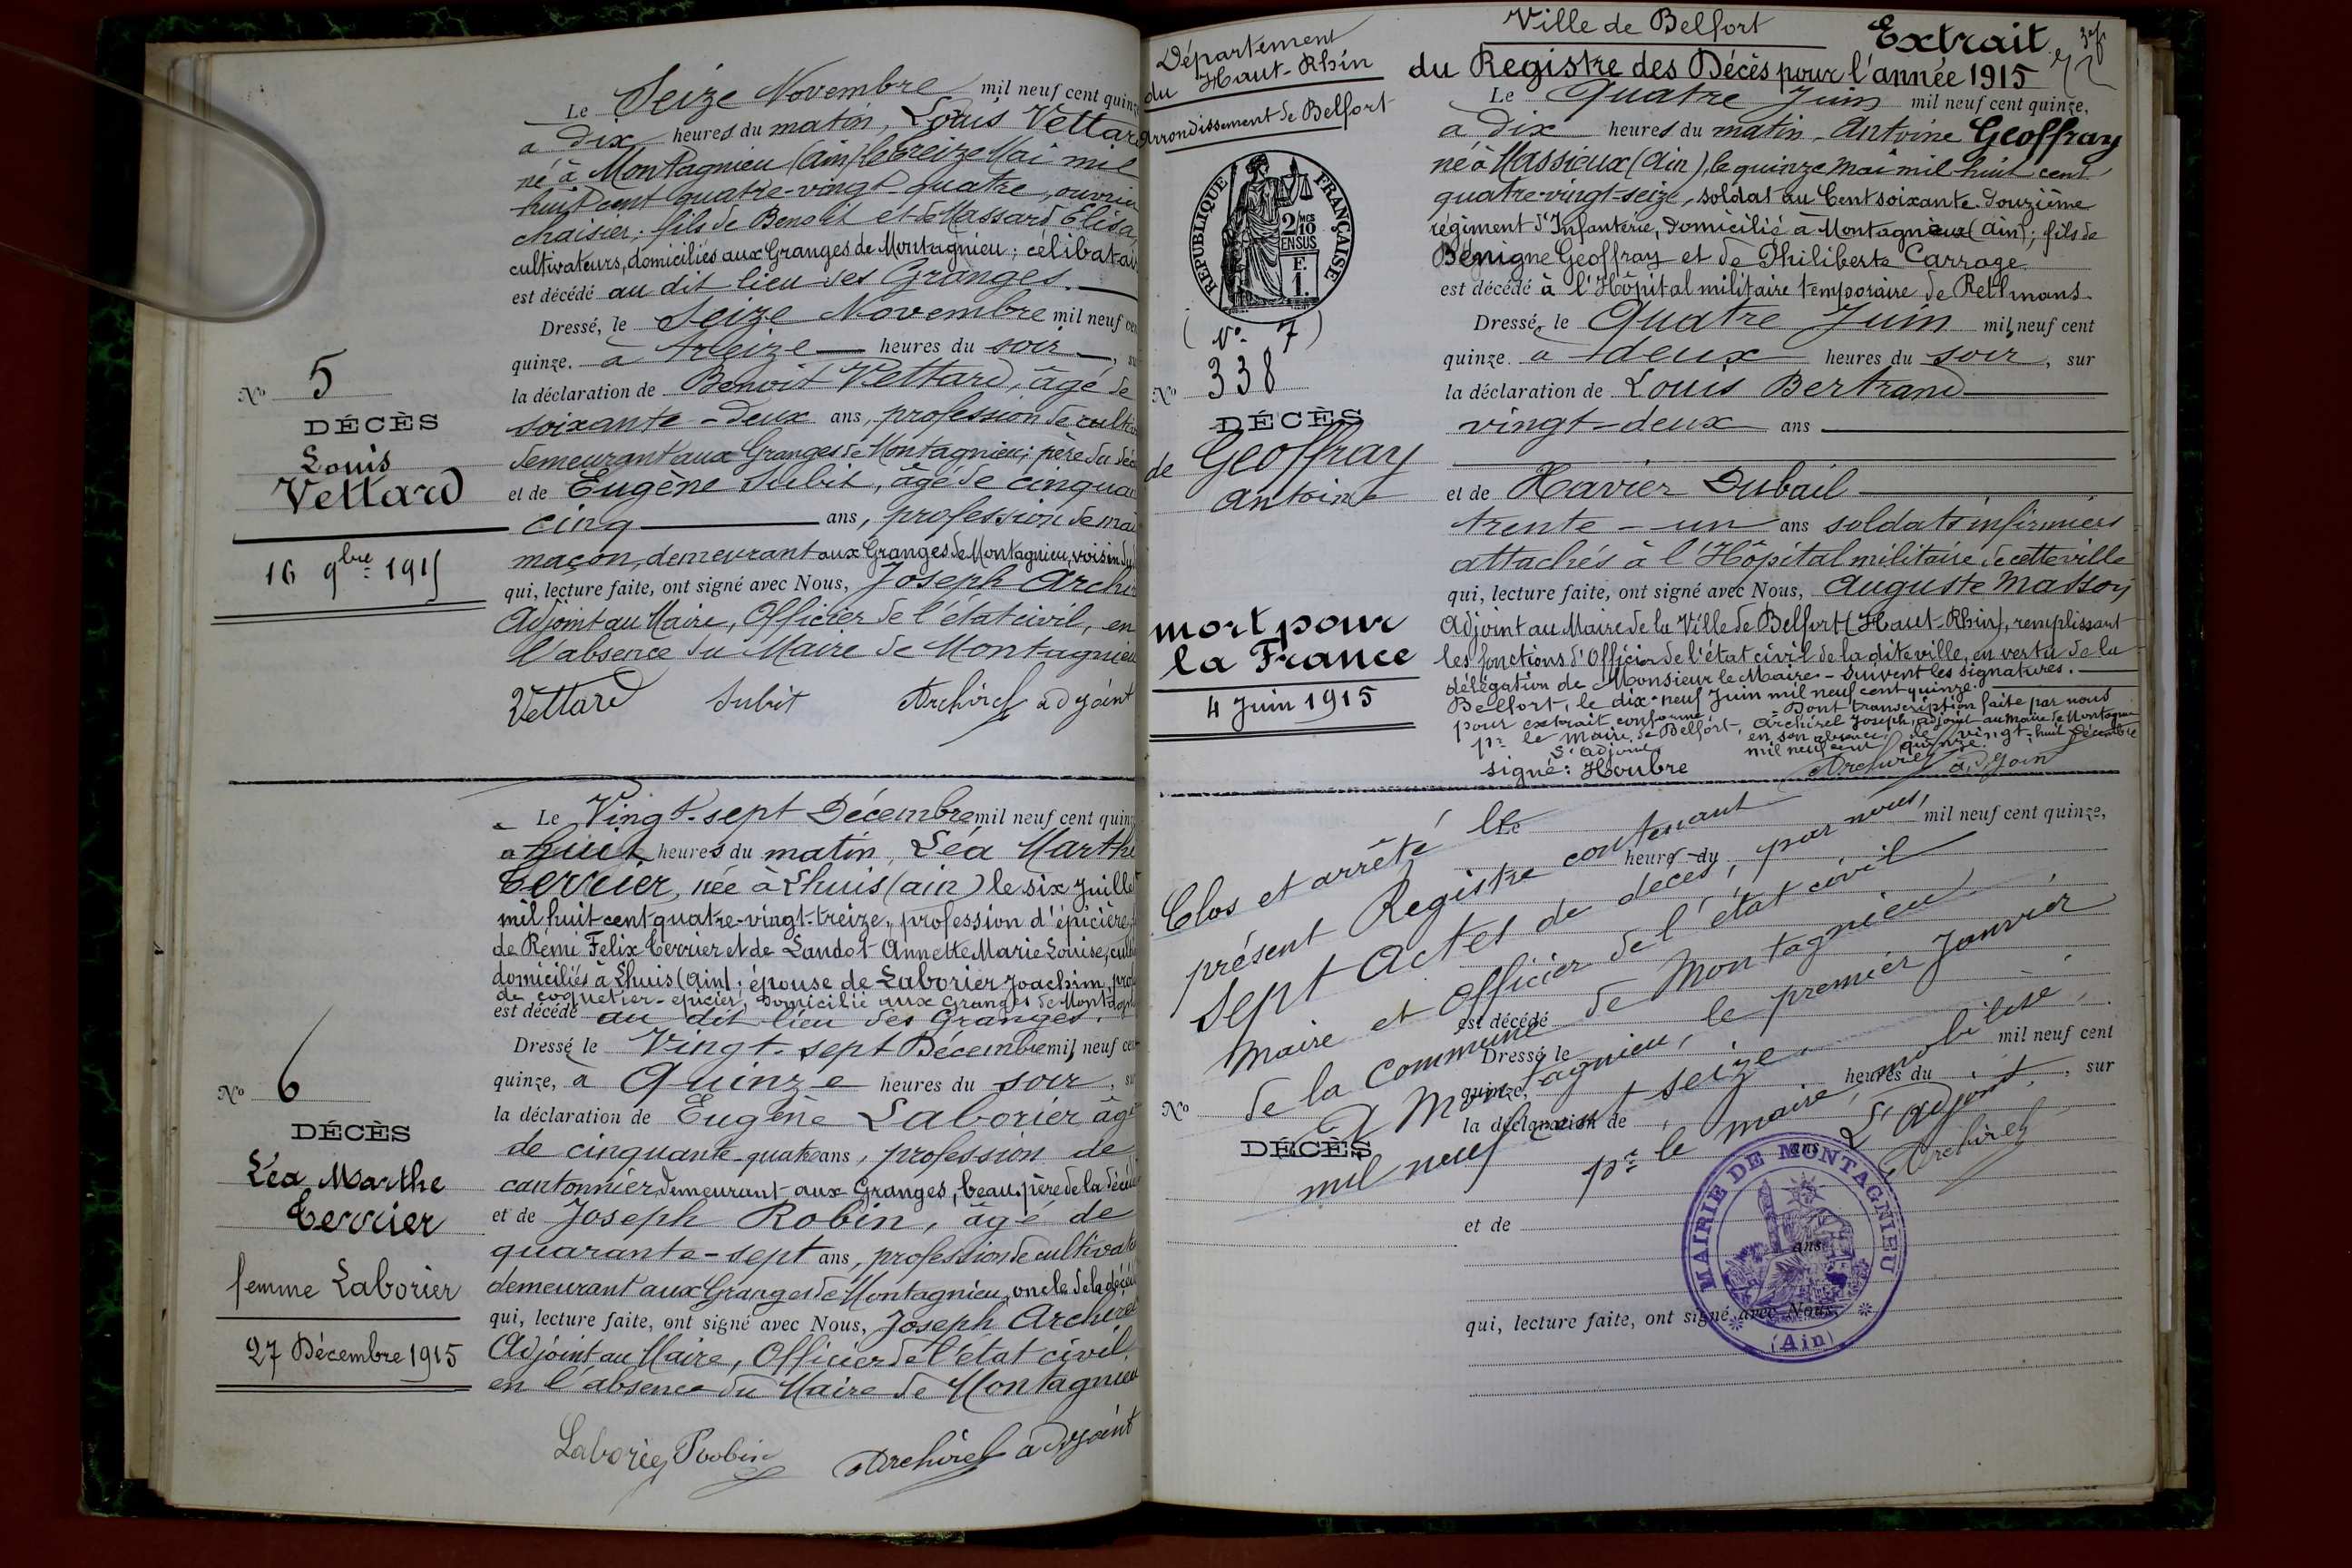 Le Seize Novembre mil neuf cent quinze
à dix heures du matin, Louis Vettard
né à Montagnieu (Ain) le treize Mai mil
huit cent quatre-vingt-quatre, ouvrier
chaisier; fils de Benoît et de Massard Élisa,
cultivateurs, domiciliés aux Granges de Montagnieu; célibatai
est décédé au dit lieu des Granges.
Dressé, le Seize Novembre mil neuf cen
quinze. à treize heures du soir, su
la déclaration de Benoit Vettard, âgé de
soixante-deux ans, profession de cultiv
demeurant aux Granges de Montagnieu; père du déc
et de Eugène Subit, âgé de cinquan
cinq ans, profession de maî
maçon, demeurant aux Granges de Montagnieu, voisin du
qui, lecture faite, ont signé avec Nous, Joseph Archi
Adjoint au Maire, Officier de l'état civil, en
l'absence du Maire de Montagnieu
Vettard Subit Archirel adjoint
No 5
DÉCÈS
Louis
Vettard
16 9bre 1915
Le Vingt-sept Décembre mil neuf cent quinz
à huit heures du matin, Léa Marthe
Terrier, née à Lhuis (ain) le six Juillet
mil huit cent quatre-vingt-treize, profession d'épicière,
de Remi Felix Terrier et de Landot Annette Marie Louise, cult
domiciliés à Lhuis (ain); épouse de Laborier Joachim, prof
de coquetier-épicier, domicilié aux Granges de Montagn
est décédé au dit lieu des Granges.
Dressé le Vingt-sept Décembre mil neuf cen
quinze, à Quinze heures du soir, su
la déclaration de Eugène Laborier âgé
de cinquante-quatre ans, profession de
cantonnier, demeurant aux Granges, beau-père de la décéd
et de Joseph Robin, âgé de
quarante-sept ans, profession de cultivate
demeurant aux Granges de Montagnieu, oncle de la décéd
qui, lecture faite, ont signé avec Nous, Joseph Archirel
Adjoint au Maire, Officier de l'état civil,
en l'absence du Maire de Montagnieu
Laborier Robin Archirel adjoint
No 6
DÉCÈS
Léa Marthe
Terrier
femme Laborier
27 Décembre 1915
Département
du Haut-Rhin
Arrondissement de Belfort
Ville de Belfort
Extrait
du Registre des Décès pour l'année 1915
RÉPUBLIQUE FRANÇAISE
2/10 MES
EN SUS
F.
1.
(No 7)
No 338
DÉCÈS
de Geoffray
Antoine
mort pour
la France
4 Juin 1915
Le Quatre Juin mil neuf cent quinze,
à Dix heures du matin, Antoine Geoffray
né à Massieux (Ain), le quinze mai mil huit cent
quatre-vingt-seize, soldat au Cent soixante-douzième
régiment d'Infanterie, domicilié à Montagnieux (Ain); fils de
Bénigne Geoffray et de Philiberte Carrage
est décédé à l'Hôpital militaire temporaire de Rethmans.
Dressé, le Quatre Juin mil neuf cent
quinze. à deux heures du soir, sur
la déclaration de Louis Bertrand
vingt-deux ans
et de Xavier Dubail
trente-un ans soldats infirmiers
attachés à l'Hôpital militaire de cette ville
qui, lecture faite, ont signé avec Nous, Auguste Masson
Adjoint au Maire de la Ville de Belfort (Haut-Rhin), remplissant
les fonctions d'Officier de l'état civil de la dite ville, en vertu de la
délégation de Monsieur le Maire - Suivent les signatures.
Belfort, le dix-neuf Juin mil neuf cent quinze.
pour extrait conforme
pr le Maire de Belfort,
L'adjoint
signé: Houbre
Dont transcription faite par nous
Archirel Joseph, adjoint au maire de Montagnieu
en son absence, le vingt-huit Décembre
mil neuf cent quinze.
Archirel adjoin
Clos et arrêté le
présent Registre contenant
sept Actes de décès, par nous,
Maire et Officier de l'état civil
de la Commune de Montagnieu
A Montagnieu, le premier Janvier
mil neuf cent seize.
pr le maire, mobilisé,
L'adjoint,
Archirel
Le mil neuf cent quinze,
heures du
est décédé
Dressé le mil neuf cent
quinze, heures du , sur
No
la déclaration de
DÉCÈS
et de
ans
qui, lecture faite, ont signé avec Nous,
MAIRIE DE MONTAGNIEU
(Ain)